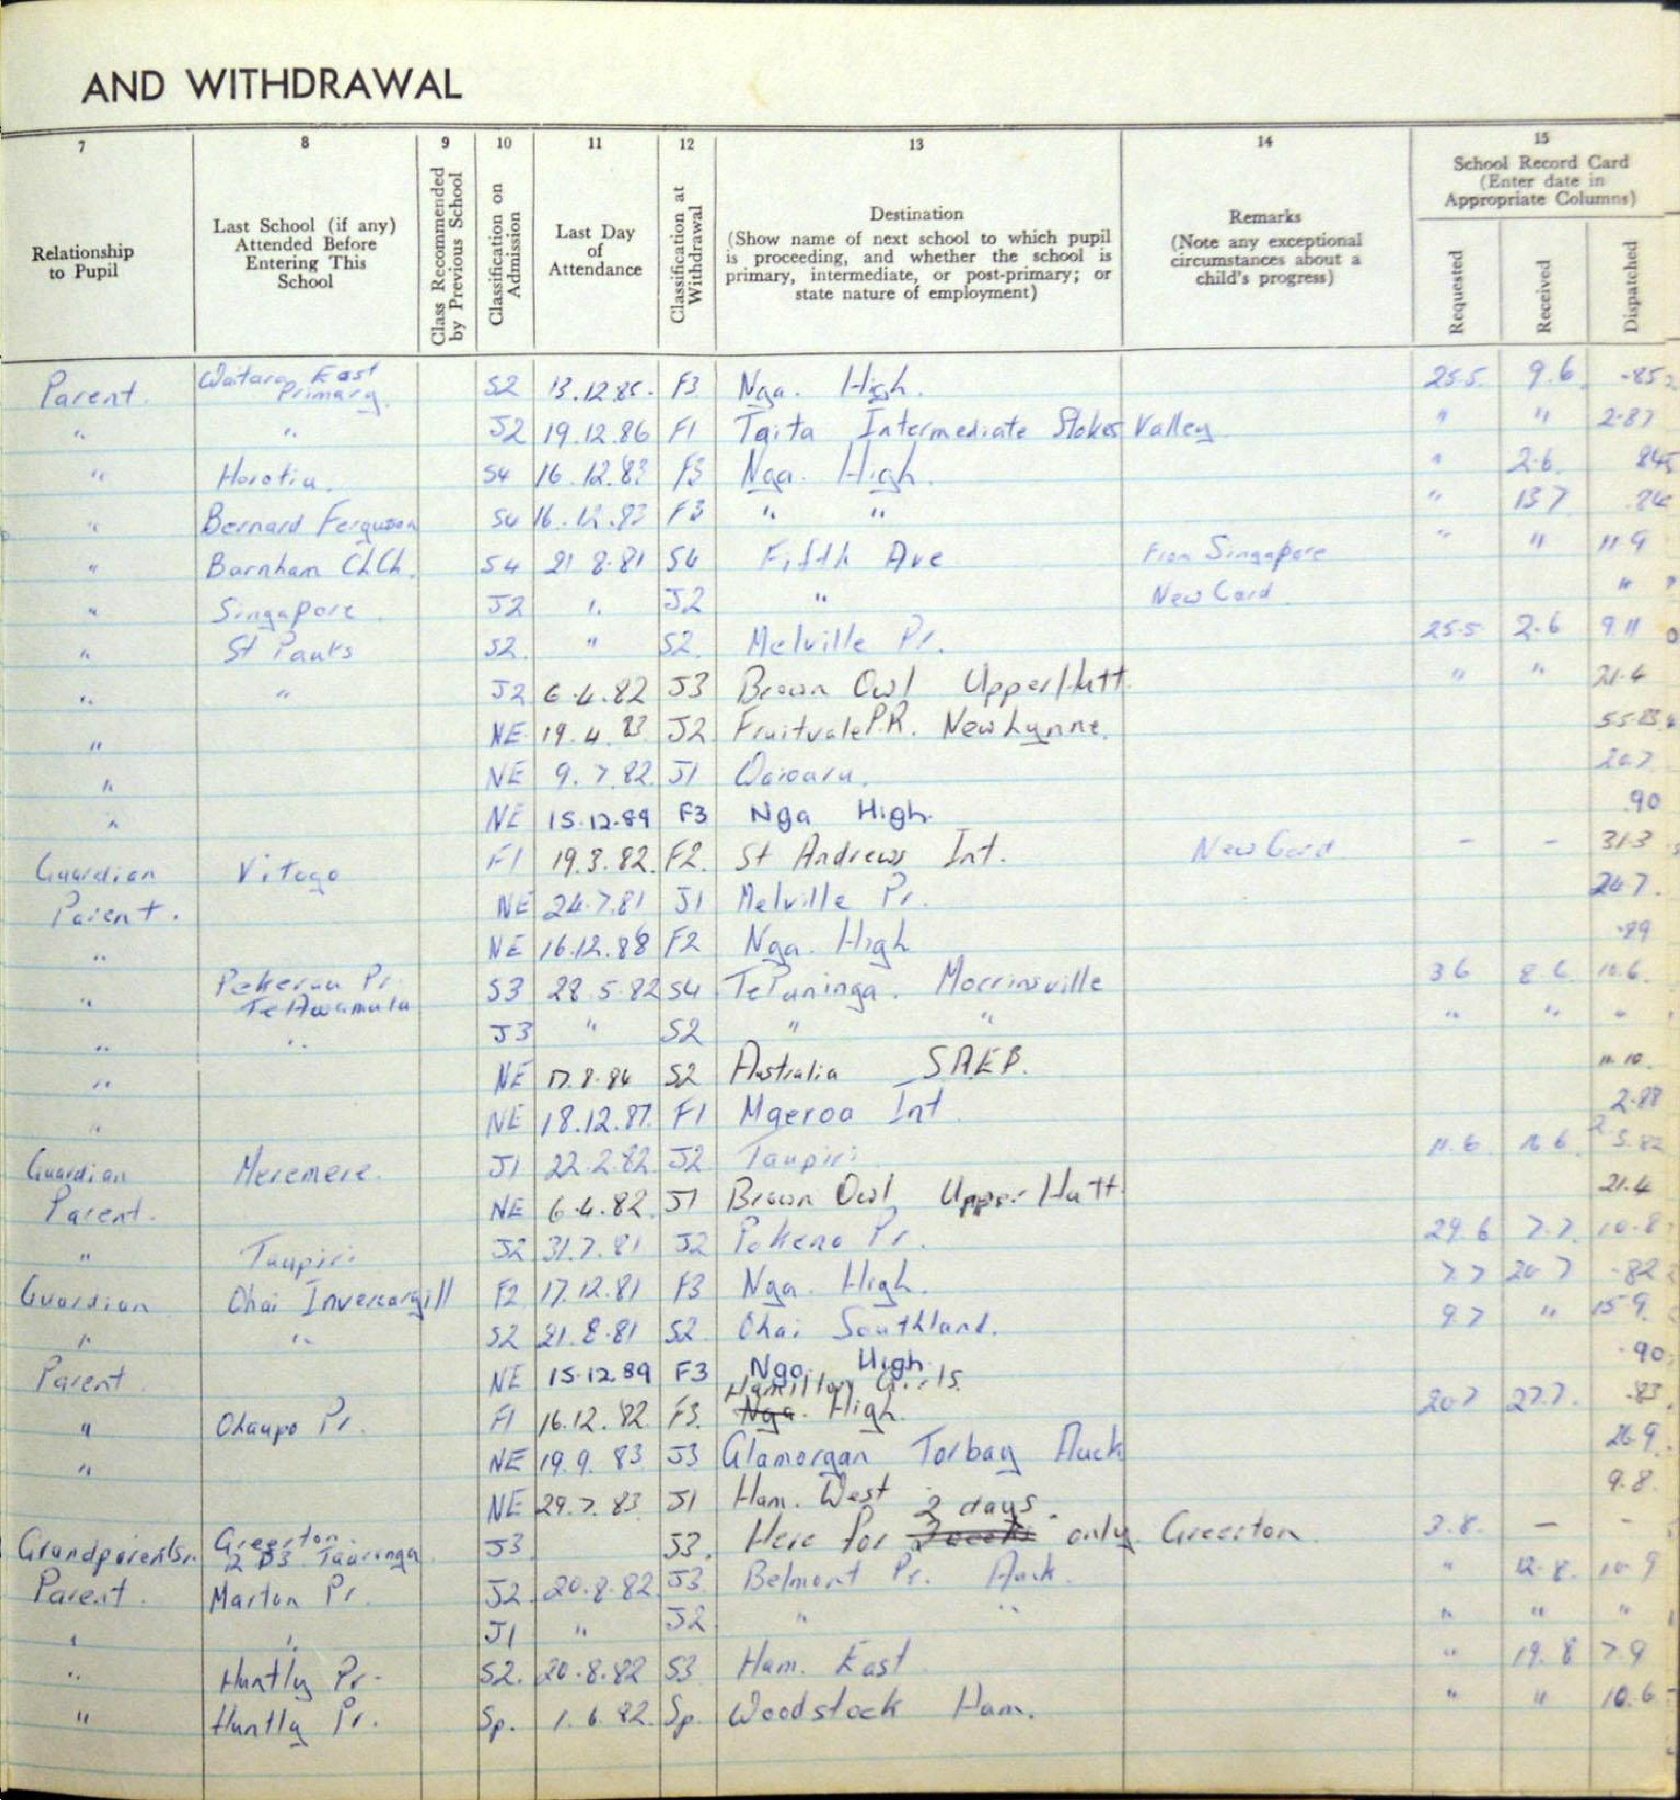 AND WITHDRAWAL
7 8 9 10 11 12 13 14 15
Relationship to Pupil
Last School (if any) Attended Before Entering This School
Class Recommended by Previous School
Classification on Admission
Last Day of Attendance
Classification at Withdrawal
Destination (Show name of next school to which pupil is proceeding, and whether the school is primary, intermediate, or post-primary; or state nature of employment)
Remarks (Note any exceptional circumstances about a child's progress)
School Record Card (Enter date in Appropriate Columns)
Requested Received Dispatched
Parent. Waitara East Primary. S2 13.12.85. F3 Nga. High. 25.5. 9.6 .85
" " J2 19.12.86 F1 Taita Intermediate Stokes Valley " " 2.87
" Horotiu. S4 16.12.83 F3 Nga. High. " 2.6
" Bernard Ferguson S4 16.12.83 F3 " " " 13.7 .84
" Burnham Ch.Ch. S4 21 8.81 S4 Fifth Ave From Singapore " " 11.9
" Singapore. J2 " J2 " New Card "
" St Pauls S2. " S2. Melville Pr. 25.5 2.6 9.11
" " J2 6.4.82 J3 Brown Owl Upper Hutt. " " 21.4
" NE 19.4.83 J2 Fruitvale P.R. New Lynne.
" NE 9.7.82. J1 Waiouru. 20.7
" NE 15.12.89 F3 Nga High. .90
Guardian Vitogo F1 19.3.82. F2. St Andrews Int. New Card - - 31.3
Parent. NE 24.7.81 J1 Melville Pr. 24.7.
" NE 16.12.88 F2 Nga. High .89
" Pekerau Pr. Te Awamutu S3 28.5.82 S4 Te Puninga. Morrinsville 3.6 8.6 10.6.
" " J3 " S2 " " " " "
" NE 17.8.84 S2 Australia 11.10.
" NE 18.12.87. F1 Maeroa Int. 2.88
Guardian Meremere. J1 22.2.82. J2 Taupiri 11.6 16.6
Parent. NE 6.4.82. J1 Brown Owl Upper Hutt. 21.4
" Taupiri J2 31.7.81 J2 Pokeno Pr. 29.6 7.7. 10.8
Guardian Ohai Invercargill F2 17.12.81 F3 Nga. High. 7.7 20.7 .82
" " S2 21.8.81 S2 Ohai Southland. 9.7 " 15.9.
Parent NE 15.12.89 F3 Nga. High. .90
" Ohaupo Pr. F1 16.12.82. F3. Hamilton Girls Nga. High. 20.7 27.7. .83
" NE 19.9.83 J3 Glamorgan Torbay Auck 26.9
NE 29.7.83 J1 Ham. West 9.8.
Grandparents. Greerton Tauranga J3 J3. Here for 2 days only. Greerton 3.8. - -
Parent. Marton Pr. J2. 20.8.82 J3 Belmont Pr. Auck. " 12.8. 10.9
" " J1 " J2 " " " " "
" Huntly Pr. S2. 20.8.82 S3 Ham. East " 19.8 7.9
" Huntly Pr. Sp. 1.6.82. Sp. Woodstock Ham. " " 10.6